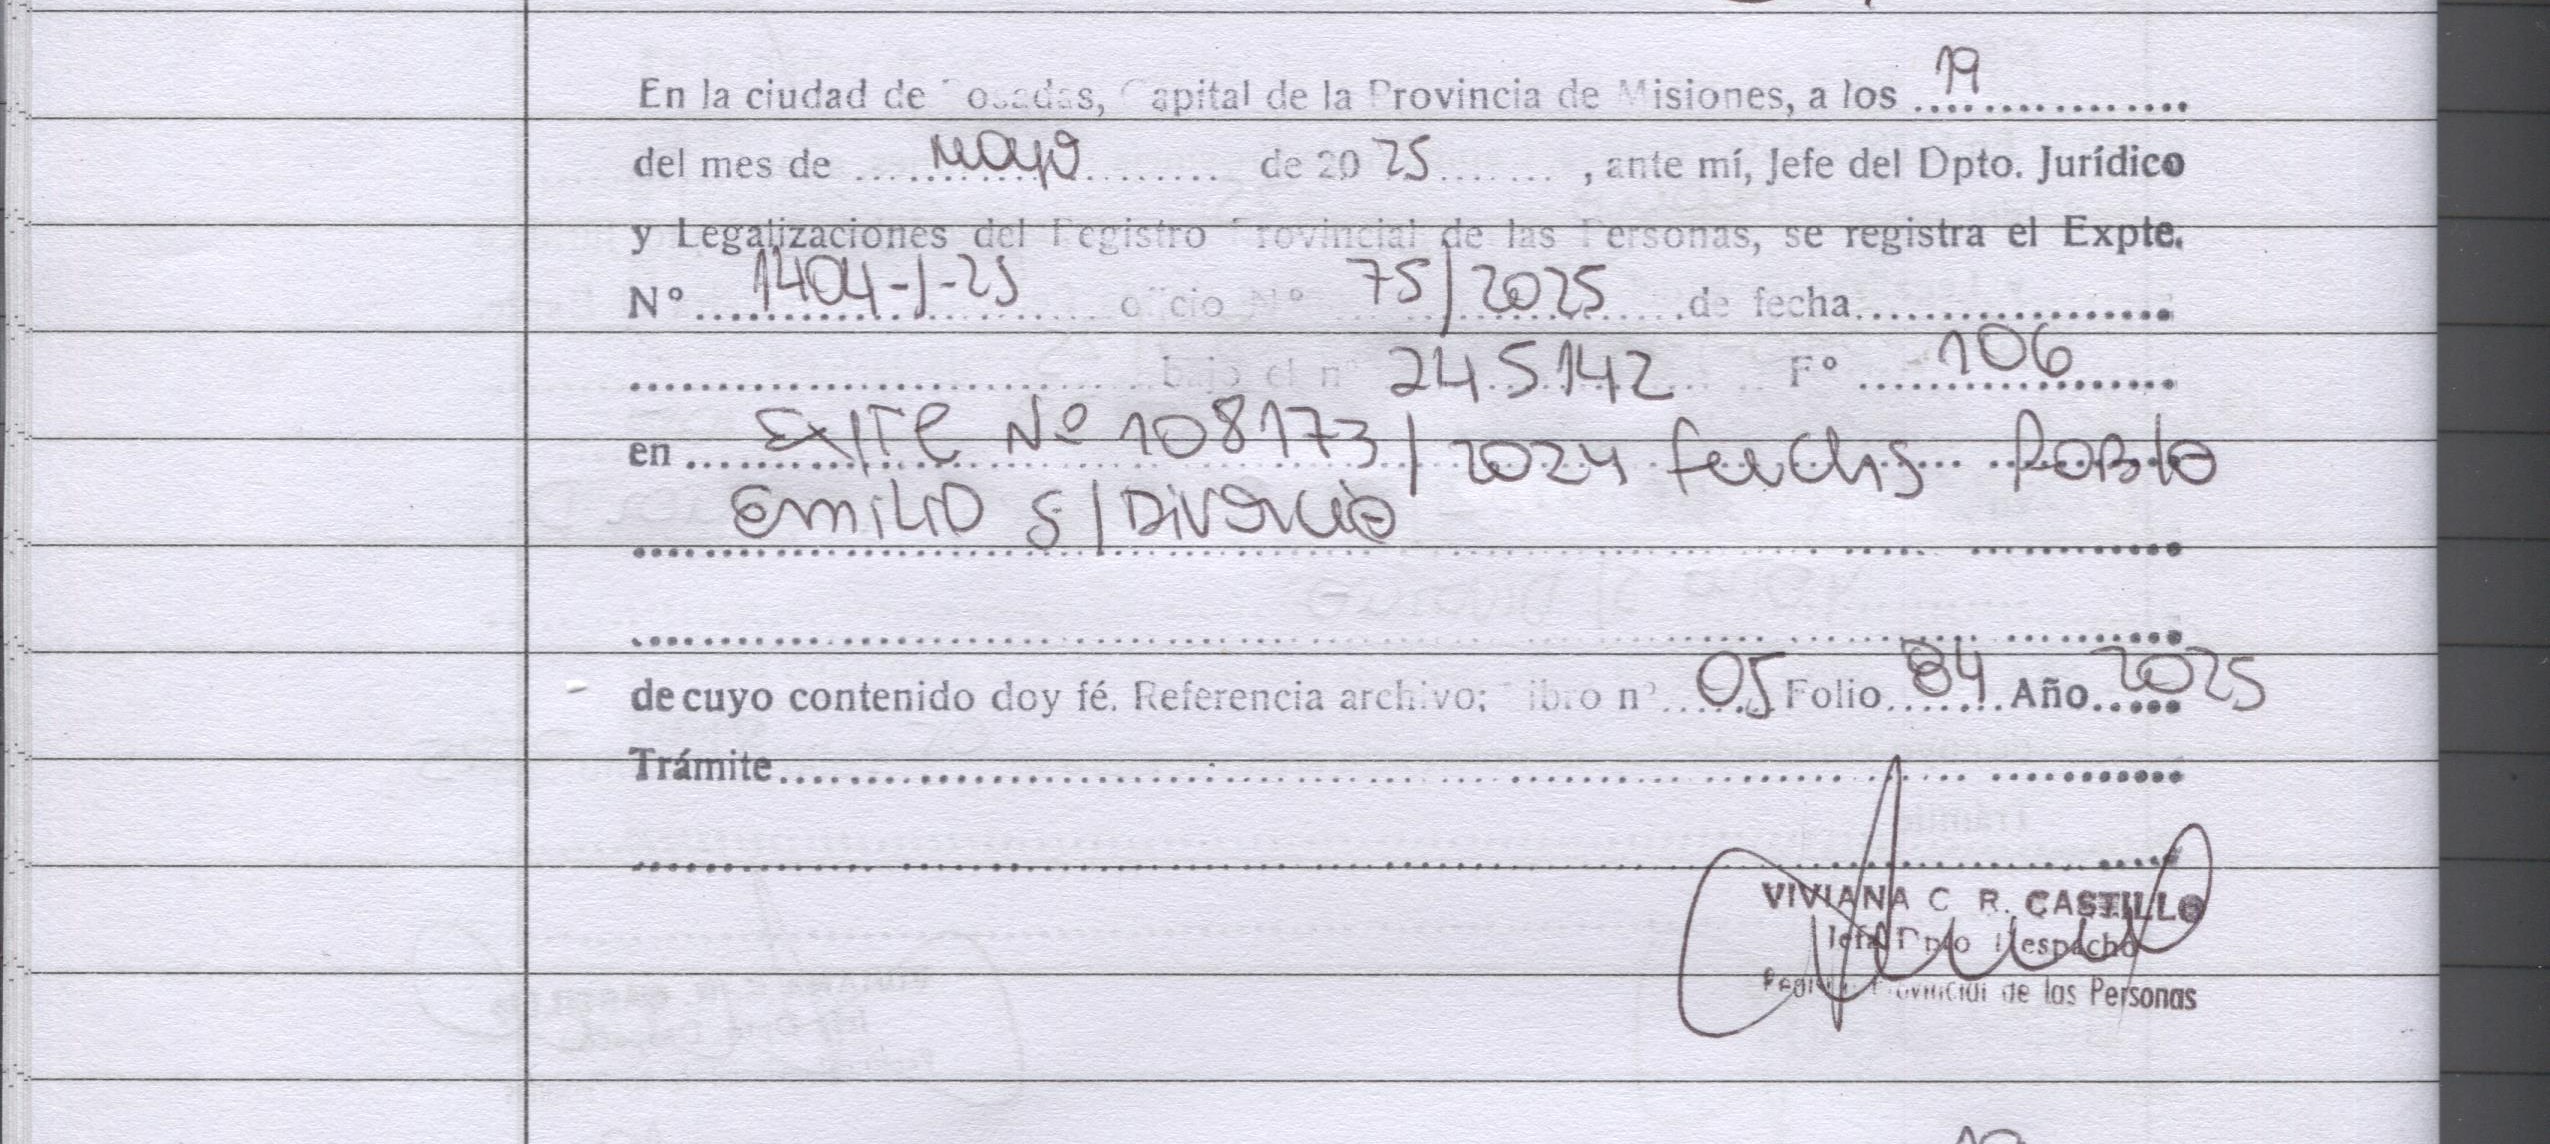 En la ciudad de Posadas, Capital de la Provincia de Misiones, a los 19
del mes de mayo de 2025, ante mí, Jefe del Dpto. Jurídico
y Legalizaciones del Registro Provincial de las Personas, se registra el Expte.
Nº 1404-J-25 oficio Nº 75/2025 de fecha
bajo el nº 245.142 Fº 106
en Expte Nº 108173/2024 Fuchs Pablo
Emilio S/Divorcio
de cuyo contenido doy fé. Referencia archivo; Libro nº 05 Folio 84 Año 2025
Trámite
VIVIANA C R. CASTILLO
Jefa Dpto Despacho
Registro Provincial de las Personas